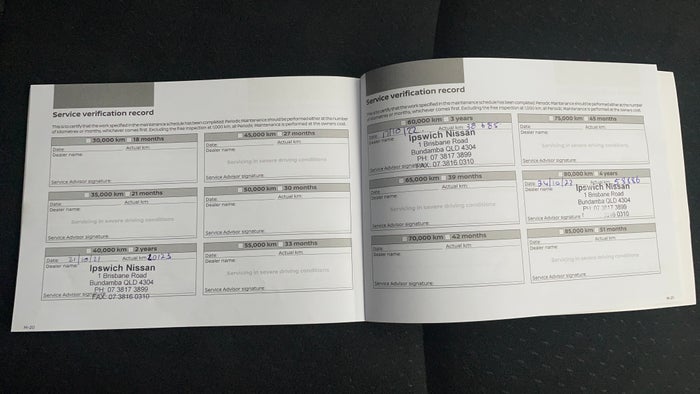 Service verification record
This is to certify that the work specified in the maintenance schedule has been completed. Periodic Maintenance should be performed either at the number
of kilometres or months, whichever comes first. Excluding the free inspection at 1,000 km, all Periodic Maintenance is performed at the owners cost.
30,000 km 18 months
Date: Actual km:
Dealer name:
Service Advisor signature:
35,000 km 21 months
Date: Actual km:
Dealer name:
Servicing in severe driving conditions
Service Advisor signature:
40,000 km 2 years
Date: 21/10/21 Actual km: 20123
Dealer name:
Ipswich Nissan
1 Brisbane Road
Bundamba QLD 4304
PH: 07 3817 3899
FAX: 07 3816 0310
Service Advisor signature:
M-20
45,000 km 27 months
Date: Actual km:
Dealer name:
Servicing in severe driving conditions
Service Advisor signature:
50,000 km 30 months
Date: Actual km:
Dealer name:
Service Advisor signature:
55,000 km 33 months
Date: Actual km:
Dealer name:
Servicing in severe driving conditions
Service Advisor signature:
Service verification record
This is to certify that the work specified in the maintenance schedule has been completed. Periodic Maintenance should be performed either at the number
of kilometres or months, whichever comes first. Excluding the free inspection at 1,000 km, all Periodic Maintenance is performed at the owners cost.
60,000 km 3 years
Date: Actual km:
Dealer name:
Ipswich Nissan
1 Brisbane Road
Bundamba QLD 4304
PH: 07 3817 3899
FAX: 07 3816 0310
Service Advisor signature:
65,000 km 39 months
Date: Actual km:
Dealer name:
Servicing in severe driving conditions
Service Advisor signature:
70,000 km 42 months
Date: Actual km:
Dealer name:
Service Advisor signature:
75,000 km 45 months
Date: Actual km:
Dealer name:
Servicing in severe driving conditions
Service Advisor signature:
80,000 km 4 years
Date: Actual km: 58886
Dealer name:
Ipswich Nissan
1 Brisbane Road
Bundamba QLD 4304
PH: 07 3817 3899
0310
Service Advisor signature:
85,000 km 51 months
Date: Actual km:
Dealer name:
Servicing in severe driving conditions
Service Advisor signature:
M-21